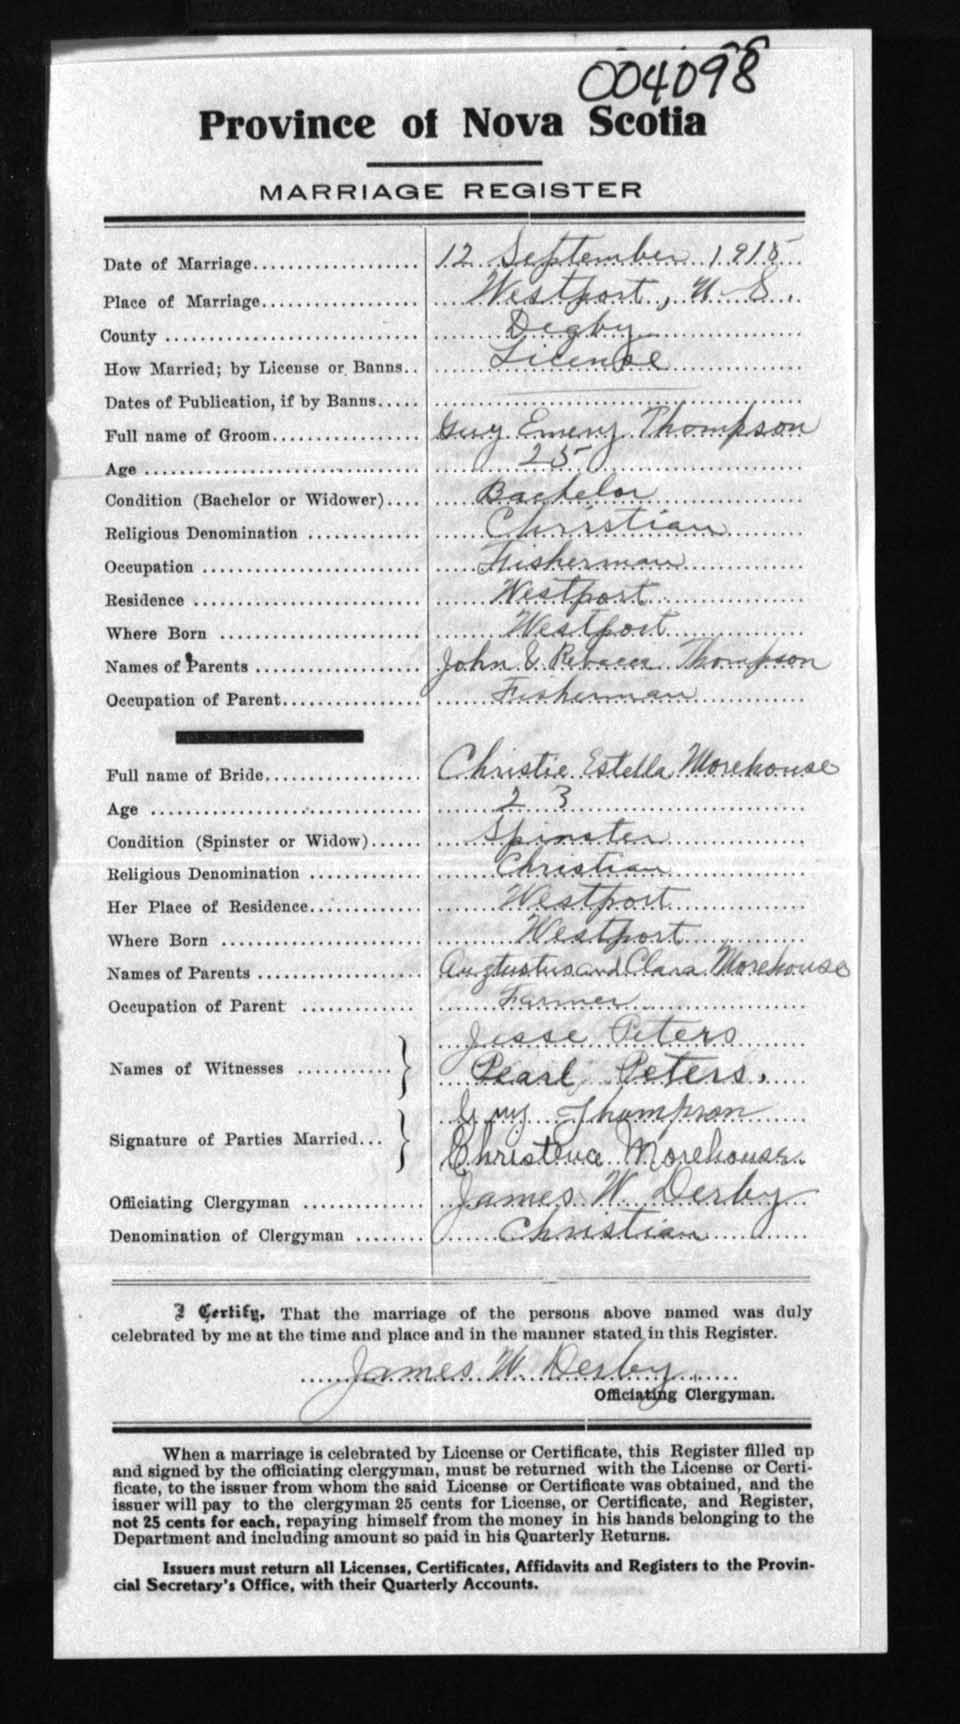 004098
Province of Nova Scotia
MARRIAGE REGISTER
Date of Marriage 12 September 1915
Place of Marriage Westport, N. S.
County Digby
How Married; by License or Banns License
Dates of Publication, if by Banns
Full name of Groom Guy Emery Thompson
Age 25
Condition (Bachelor or Widower) Bachelor
Religious Denomination Christian
Occupation Fisherman
Residence Westport
Where Born Westport
Names of Parents John & Rebecca Thompson
Occupation of Parent Fisherman
Full name of Bride Christie Estella Morehouse
Age 23
Condition (Spinster or Widow) Spinster
Religious Denomination Christian
Her Place of Residence Westport
Where Born Westport
Names of Parents Augtustus and Clara Morehouse
Occupation of Parent Farmer
Jesse Peters
Names of Witnesses
Pearl Peters.
Guy Thompson
Signature of Parties Married
Morehouse.
Officiating Clergyman James W. Derby
Denomination of Clergyman Christian
I Certify, That the marriage of the persons above named was duly
celebrated by me at the time and place and in the manner stated in this Register.
James W. Derby
Officiating Clergyman.
When a marriage is celebrated by License or Certificate, this Register filled up
and signed by the officiating clergyman, must be returned with the License or Certi-
ficate, to the issuer from whom the said License or Certificate was obtained, and the
issuer will pay to the clergyman 25 cents for License, or Certificate, and Register,
not 25 cents for each, repaying himself from the money in his hands belonging to the
Department and including amount so paid in his Quarterly Returns.
Issuers must return all Licenses, Certificates, Affidavits and Registers to the Provin-
cial Secretary's Office, with their Quarterly Accounts.